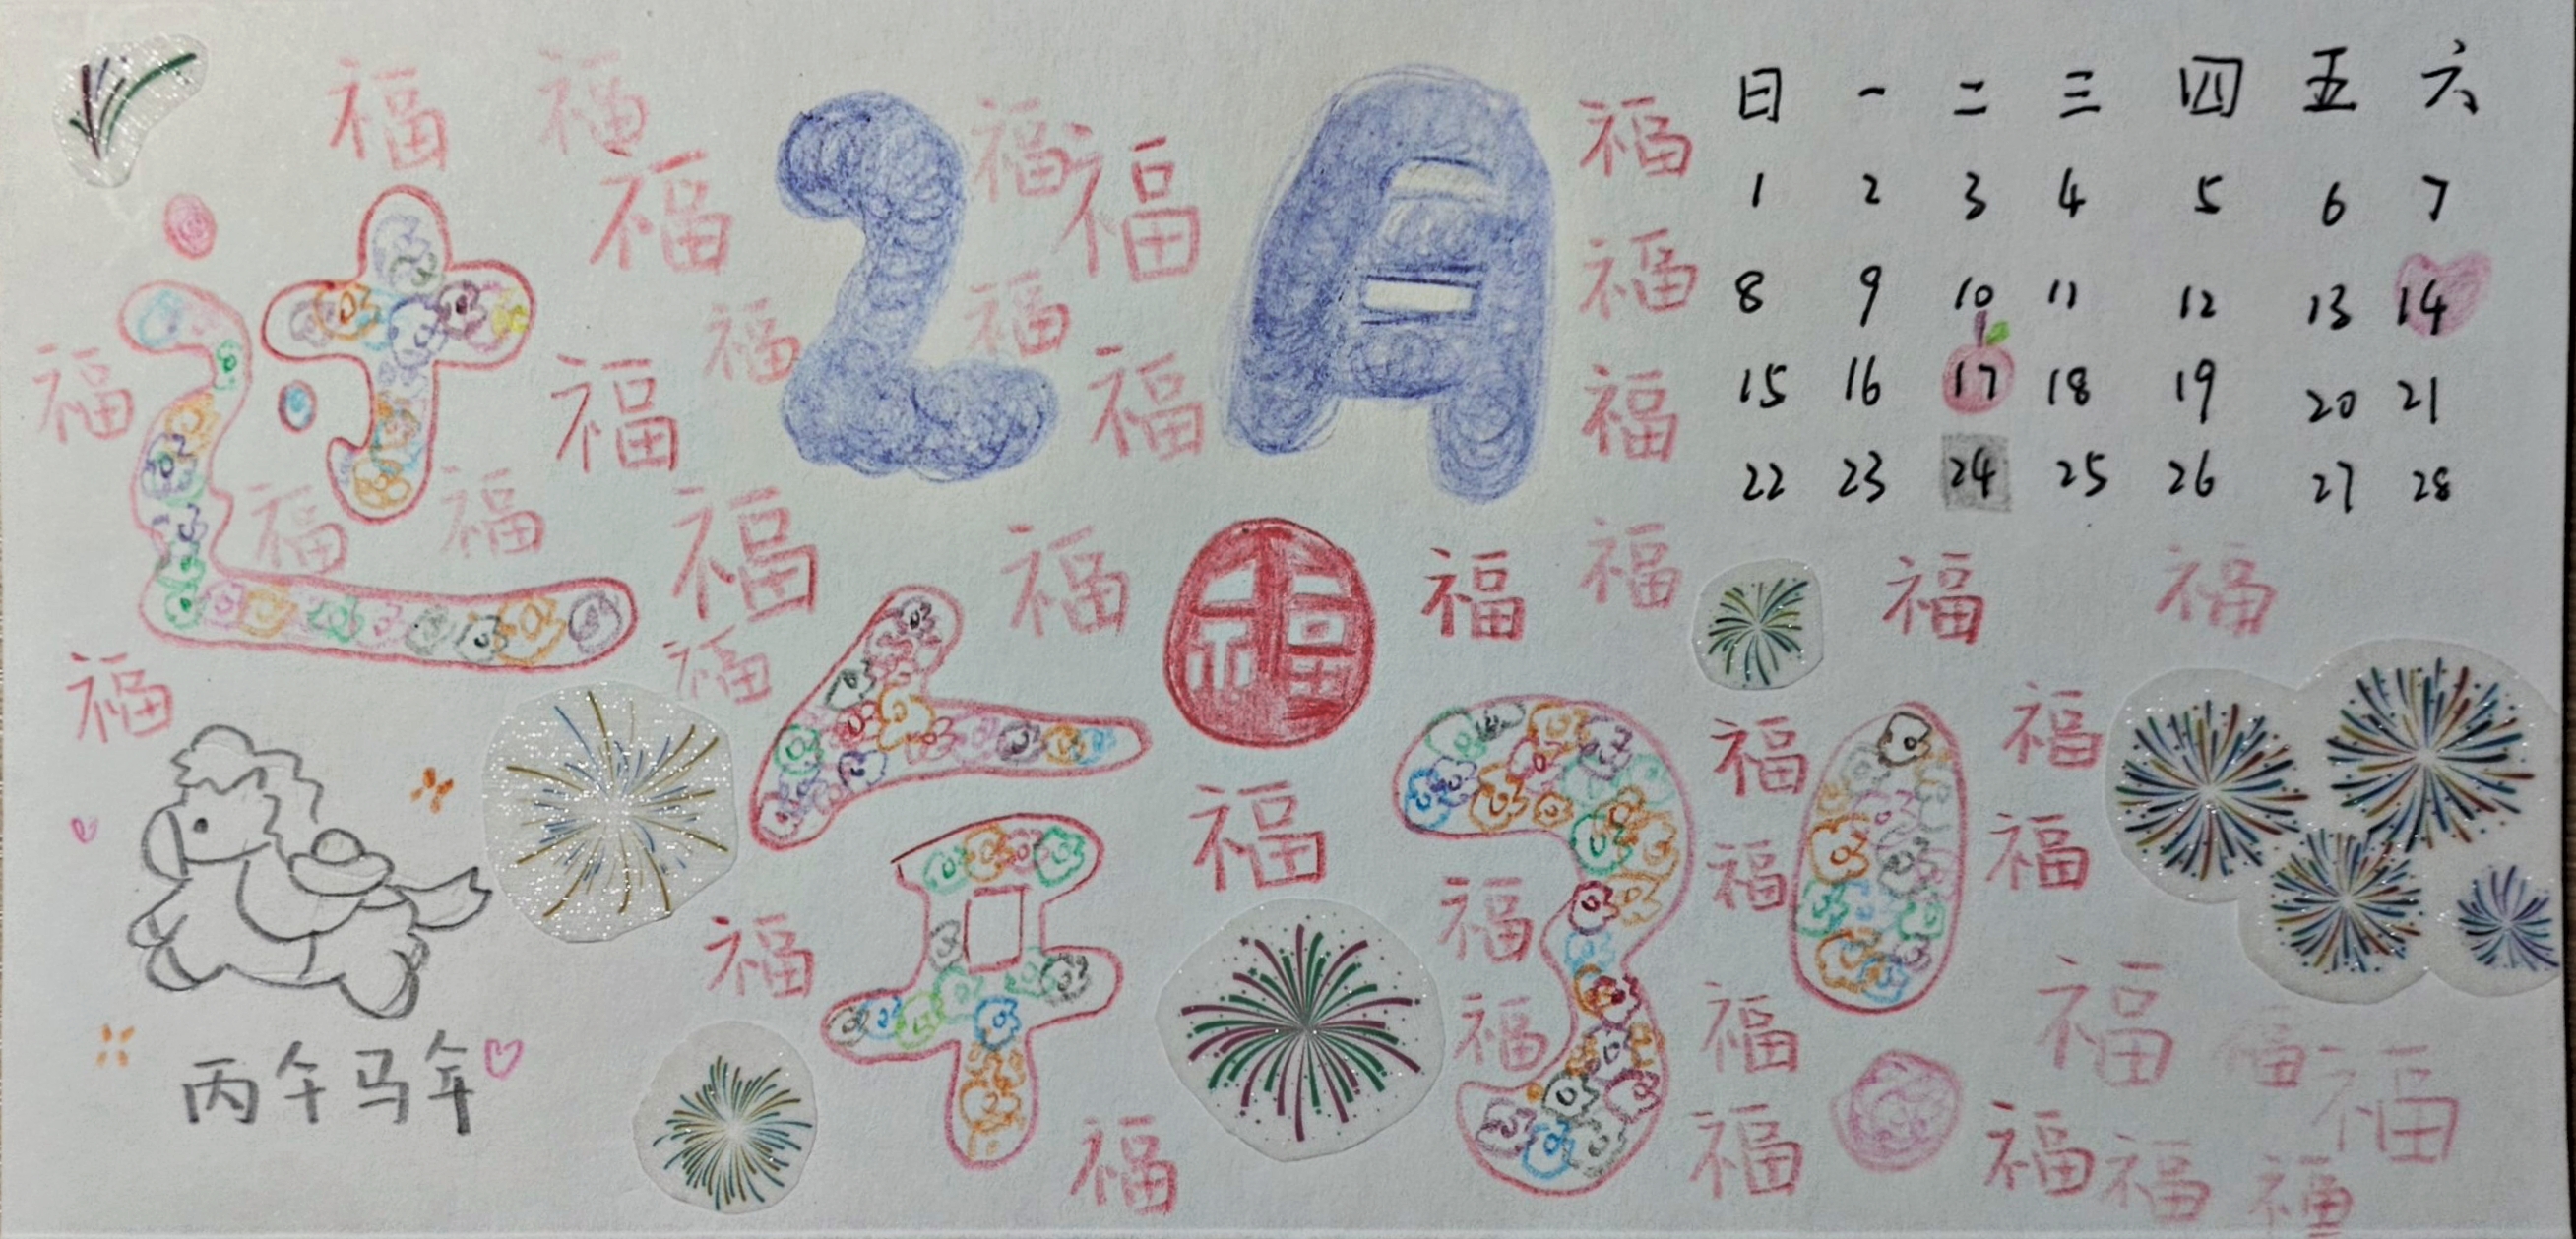 福 福 福 福 福 福
2月
日 一 二 三 四 五 六
1 2 3 4 5 6 7
8 9 10 11 12 13 14
15 16 17 18 19 20 21
22 23 24 25 26 27 28
福 福 福
福 福 福 福
过年了!
福 福 福 福 福 福 福 福 福
福 福
福 福
福 福 福
福 福
福 福 福 福 福
丙午马年
福 福 福 福 福